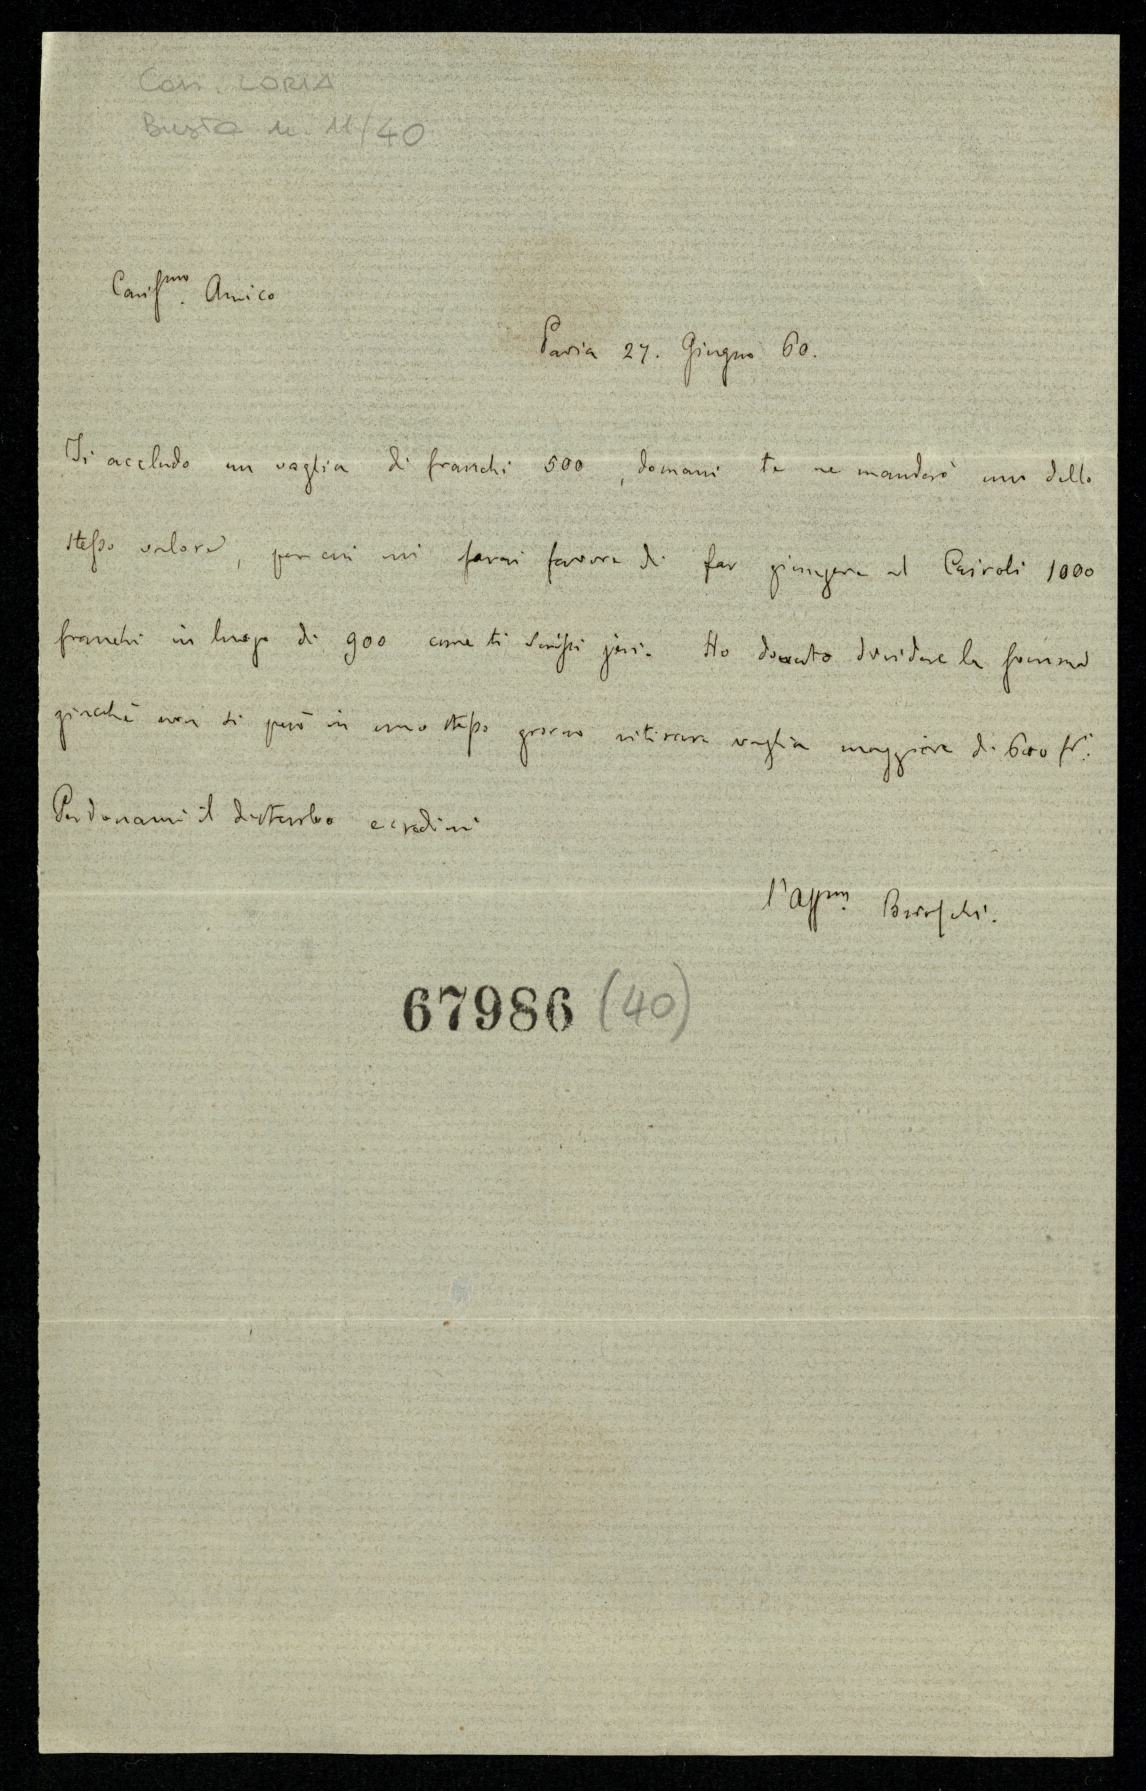 Cass. LORIA
Busta n. 11/40
Cariss.mo Amico
Pavia 27. Giugno 60.
Ti accludo un vaglia di franchi 500, domani te ne manderò uno dello
stesso valore, per cui mi farai favore di far giungere al Cairoli 1000
franchi in luogo di 900 come ti scrissi jeri. Ho dovuto dividere la somma
giacchè non si può in uno stesso giorno ritirare vaglia maggiore di 600 fr.i
Perdonami il disturbo e credimi
l'Aff.mo Brioschi.
67986 (40)